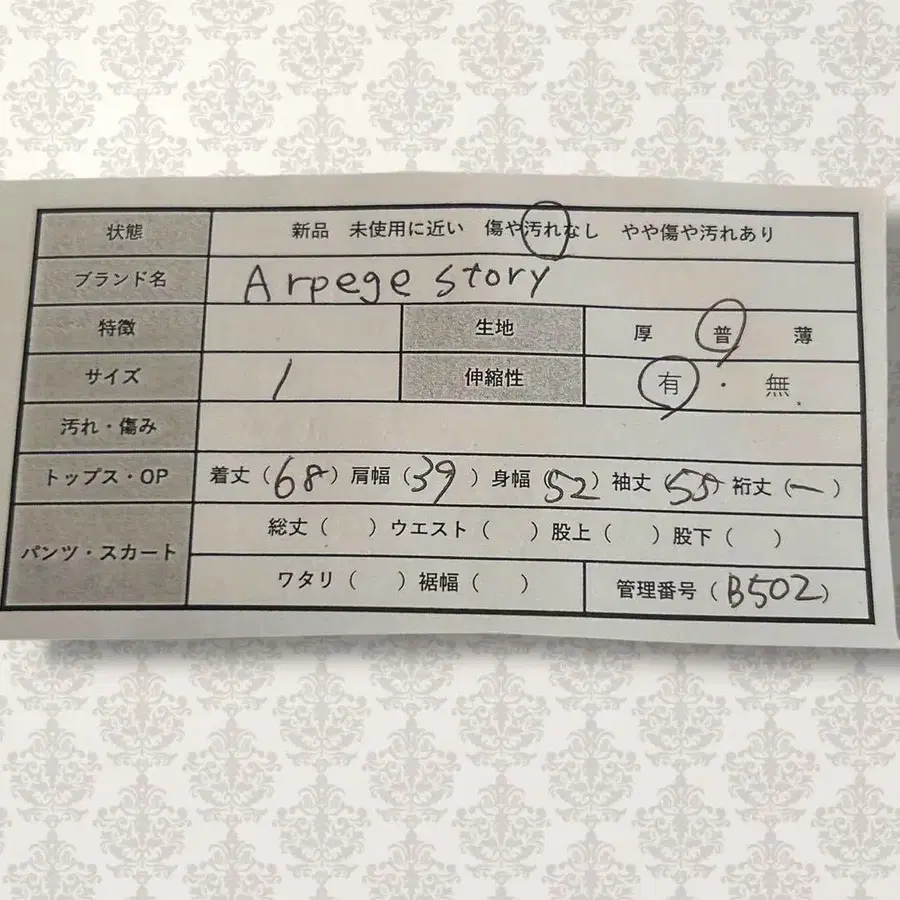 状態 新品 未使用に近い 傷や汚れなし やや傷や汚れあり
ブランド名 Arpege story
特徴 生地 厚 普 薄
サイズ 1 伸縮性 有・無
汚れ・傷み
トップス・OP 着丈(68)肩幅(39)身幅(52)袖丈(55)裄丈(ー)
パンツ・スカート 総丈( )ウエスト( )股上( )股下( )
ワタリ( )裾幅( ) 管理番号(B502)